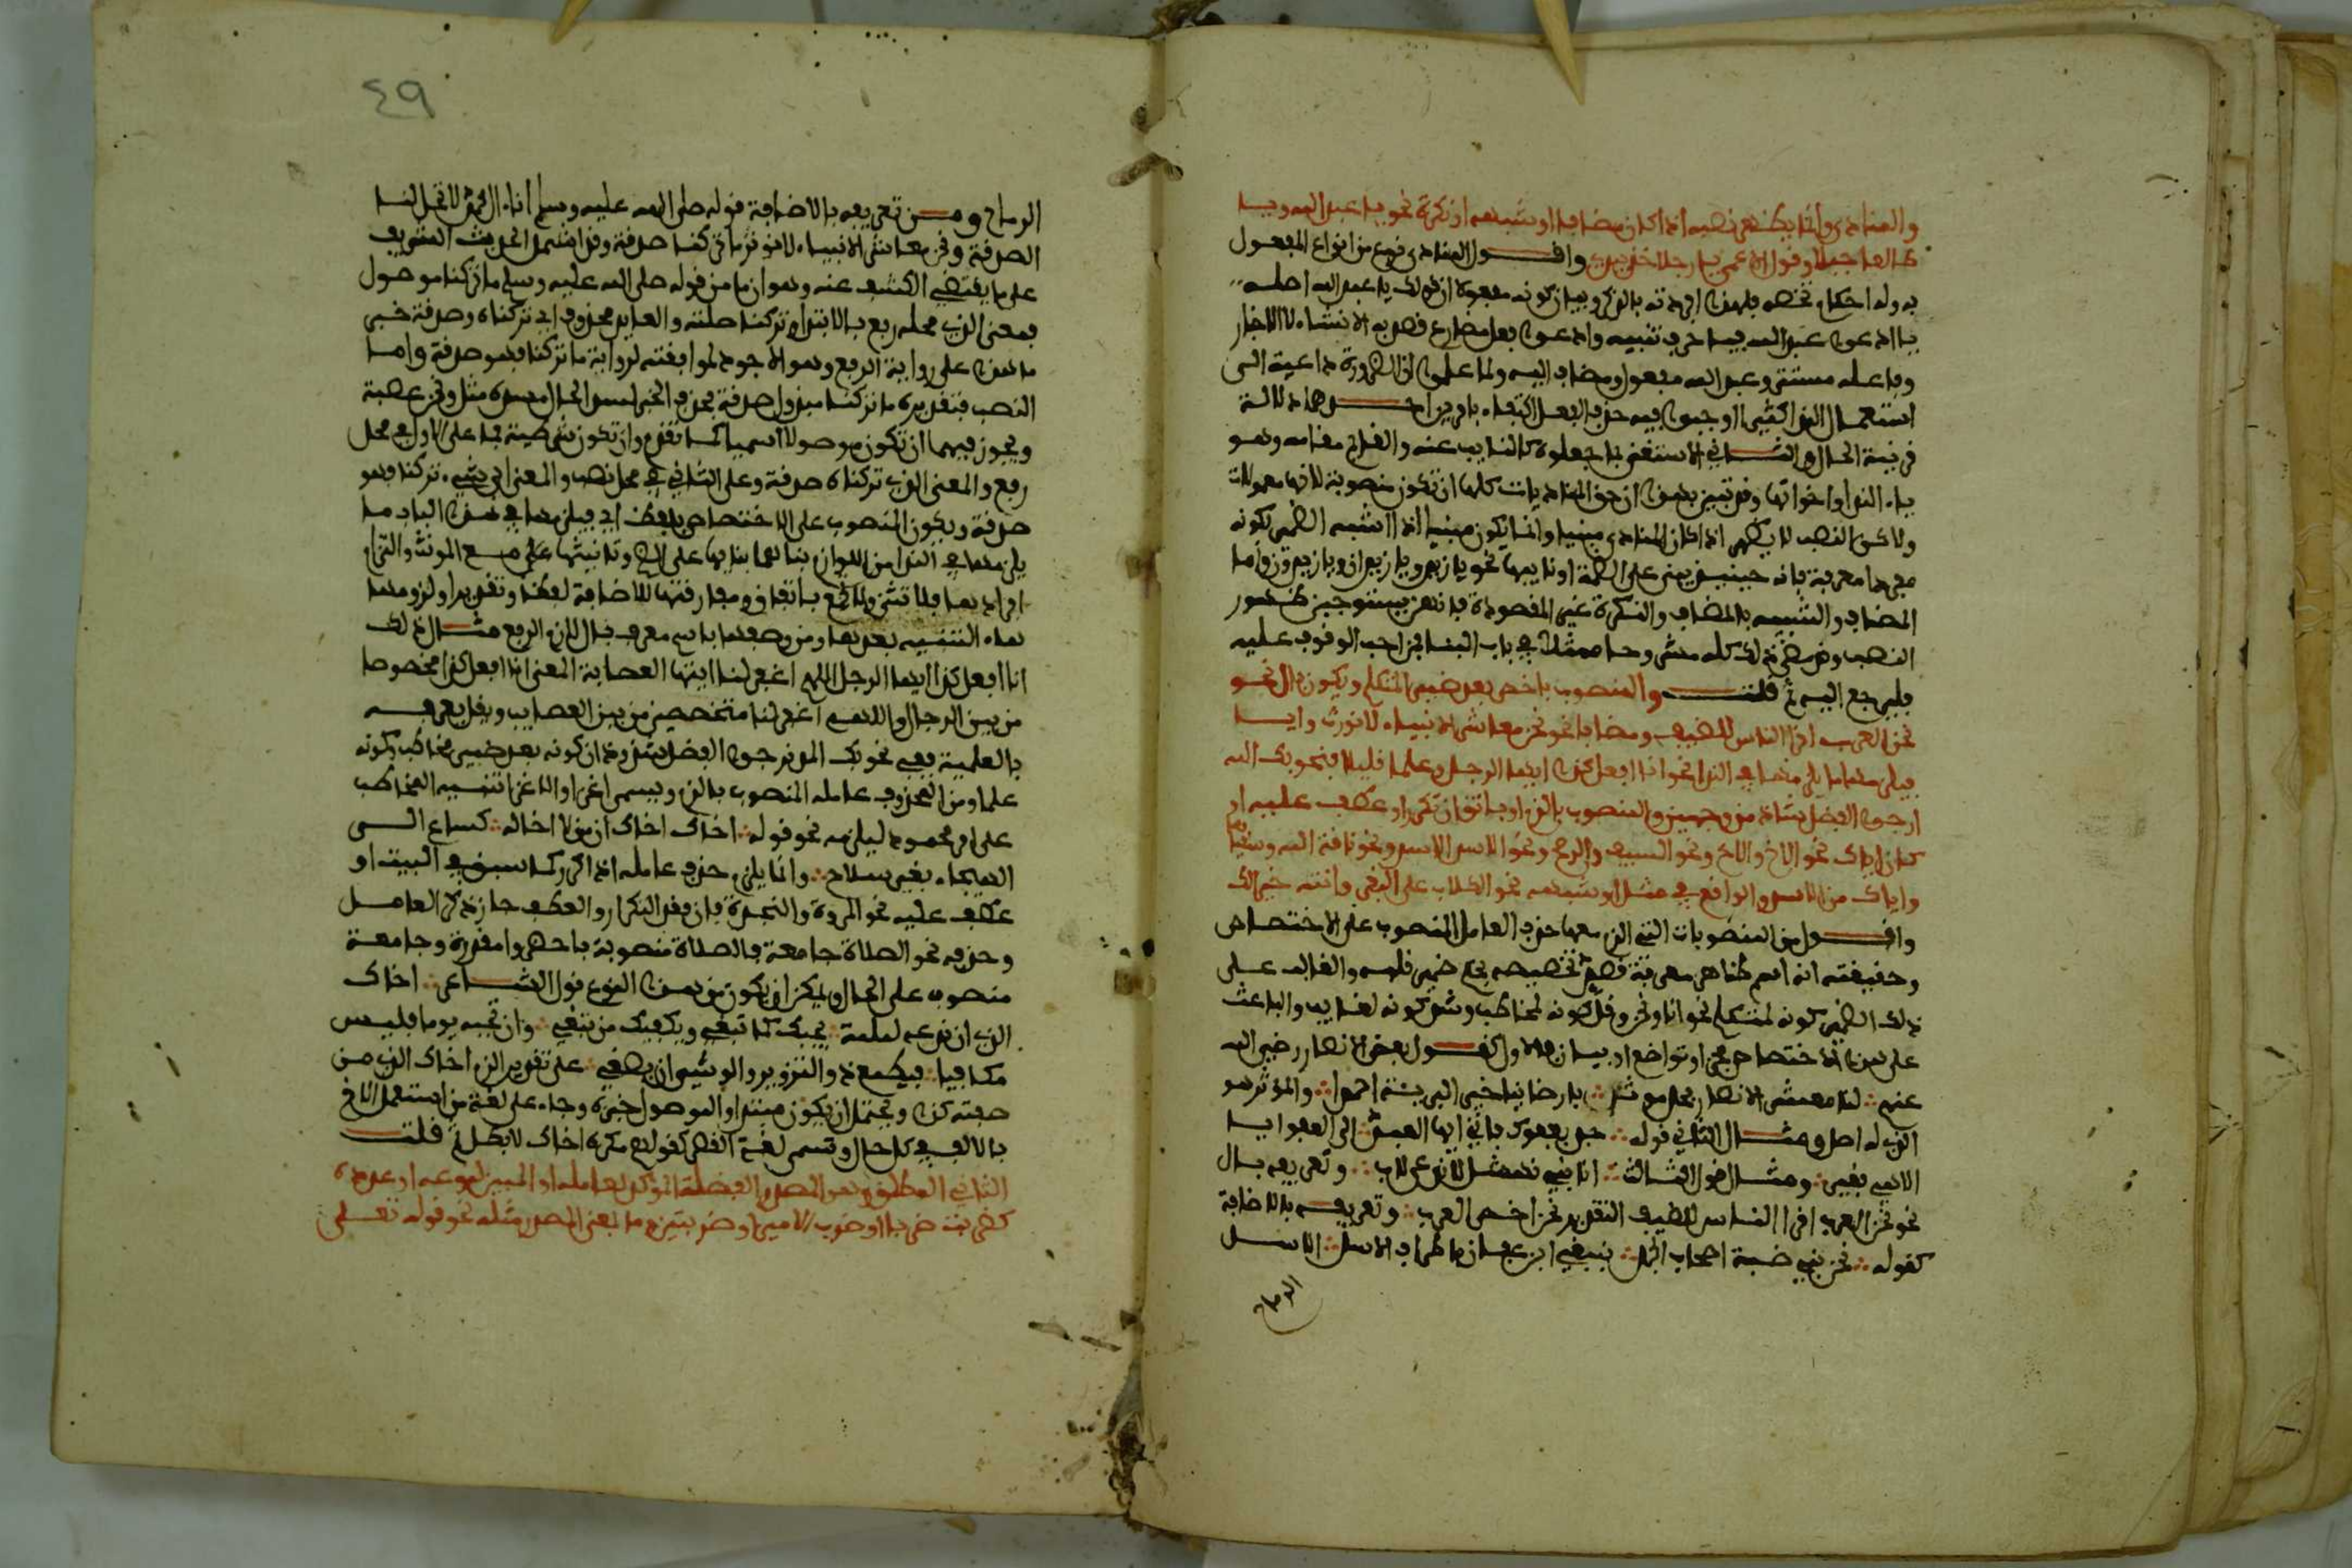 والمنادى وإنما يظهر نصبه اذا كان مضافا او شبهه او نكرة نحو يا عبد الله ويا
طالعا جبلا وقول الاعمى يا رجلا خذ بيدي واقــول المنادى نوع من انواع المفعول
به وله احكام تخصه فلهذا افردته بالذكر وبيان كونه مفعولا ان قولك يا عبد الله اصله
يا ادعو عبد الله فيا حرف تنبيه وادعو فعل مضارع قصد به الانشاء لا الاخبار
وفاعله مستتر وعبد الله مفعول ومضاف اليه ولما علموا ان الضرورة داعية الى
استعمال النداء كثيرا اوجبوا فيه حذف الفعل اكتفاء بامرين احــدهما دلالة
قرينة الحال والثــاني الاستغناء بما جعلوه كالنايب عنه والقايم مقامه وهو
ياء النداء واخواتها وقد تبين بهذا ان حق المناديات كلها ان تكون منصوبة لانها مفعولات
ولاكن النصب لا يظهر اذا كان المنادى مبنيا وانما يكون مبنيا اذا اشبه الضمير بكونه
مفردا معرفة فانه حينيذ يبنى على الضمة او نايبها نحو يا زيد ويا زيدان ويا زيدون واما
المضاف والشبيه بالمضاف والنكرة غير المقصودة فانهن يستوجبن ظهور
النصب وقد مضى ذلك كله مشروحا ممثلا في باب البناء فمن احب الوقوف عليه
فليرجع اليه ثم قلت والمنصوب باخص بعد ضمير المتكلم ويكون بال نحو
نحن العرب اقرا الناس للضيف ومضافا نحو نحن معاشر الانبياء لا نورث وايا
فيلزمها ما يلزمها في النداء نحو انا افعل كذا ايها الرجل وعلما قليلا فنحو بك الله
ارجوا الفضل شاذ من وجهين والمنصوب بالزم او باتق ان تكرر او عطف عليه او
كان اياك نحو الاخ والاخ ونحو السيف والرمح ونحو الاسد الاسد ونحو ناقة الله وسقياها
واياك من الاسد والواقع في مثل او شبهه نحو الكلاب على البقر وانته خيرا لك
واقــول من المنصوبات التي الزم معها حذف العامل المنصوب على الاختصاص
وحقيقته انه اسم ظاهر معرفة قصد تخصيصه بحكم ضمير قبله والغالب على
ذلك الضمير كونه لمتكلم نحو انا ونحن وقل كونه لمخاطب وشذ كونه لغايب والباعث
على هذا الاختصاص فخر او تواضع او بيان فالاول كقــول بعض الانصار رضي الله
عنهم لنا معشر الانصار مجد موثل بارضاينا خير البرية احمدا والموثر هو
الذي له اصل ومثــال الثاني قوله جد بعفوك فاني ايها العبد الى العفو ايا
الاهي فقير ومثــال الثالث انا بني نهشل لا ندعي لاب وتعريفه بال
نحو نحن العرب اقرا الناس للضيف التقدير نحن اخص العرب وتعريفه بالاضافة
كقوله نحن بني ضبة اصحاب الجمل ننعي ابن عفان باطراف الاسل الاسل
الرماح
٤٩
الرماح ومــن تعريفه بالاضافة قوله صلى الله عليه وسلم انا ءال محمد لا تحل لنا
الصدقة ونحن معاشر الانبياء لا نورث ما تركنا صدقة وقد اشتمل الحديث الشريف
على ما يقتضي الكشف عنه وهو ان ما من قوله صلى الله عليه وسلم ما تركنا موصول
بمعنى الذي محله رفع بالابتداء وتركنا صلته والعايد محذوف اي تركناه وصدقة خبر
ما هذا على رواية الرفع وهو الاجود لموافقته لرواية ما تركنا فهو صدقة واما
النصب فتقديره ما تركنا مبذول صدقة فحذف الخبر لسد الحال مسده مثل ونحن عصبة
ويجوز فيهما ان تكون موصولا اسميا كما تقدم وان تكون شرطية فما على الاول في محل
رفع والمعنى الذي تركناه صدقة وعلى الثاني في محل نصب والمعنى اي شيء تركنا فهو
صدقة ويكون المنصوب على الاختصاص بلفظ اي فيلزمها في هذا الباب ما
يلزمها في النداء من التزام بنائها بناؤها على الضم وتانيثها مع المونث والتزام
افرادها فلا تثنى ولا تجمع باتفاق ومفارقتها للاضافة لفظا وتقديرا ولزومها
هاء التنبيه بعدها ومن وصفها باسم معرف بال لازم الرفع مثــال ذلك
انا افعل كذا ايها الرجل اللهم اغفر لنا ايتها العصابة المعنى انا افعل كذا مخصوصا
من بين الرجال واللهم اغفر لنا متخصصين من بين العصايب وقد يعرف
بالعلمية ففي نحو بك الله نرجوا الفضل شذوذان كونه بعد ضمير مخاطب وكونه
علما ومن المحذوف عامله المنصوب بالزم ويسمى اغراء والاغراء تنبيه المخاطب
على امر محمود ليلزمه نحو قوله اخاك اخاك ان من لا اخا له كساع الــى
الهيجاء بغير سلاح وانما يلزم حذف عامله اذا كرر كما سبق في البيت او
عطف عليه نحو المروة والنجدة فان فقد التكرار والعطف جاز ذكر العامــل
وحذفه نحو الصلاة جامعة فالصلاة منصوبة باحضروا مقدرة وجامعة
منصوب على الحال ويمكن ان يكون من هذا النوع قول الشــاعر اخاك
الذي ان تدعه لملمة يجبك كما تبغي ويكفيك من تبغي وان تجبه يوما فليس
مكافيا فيطمع ذو التزوير والوشي ان يصغي على تقدير الزم اخاك الذي من
صفته كذا ويحتمل ان يكون مبتدا والموصول خبره وجاء على لغة من استعمل الاخ
بالالف في كل حال وتسمى لغة القصر كقولهم مكره اخاك لا بطل ثم قلت
الثاني المطلق وهو المصدر الفضلة المؤكد لعامله او المبين لنوعه او عدده
كضربت ضربا او ضرب الامير او ضربتين وما بمعنى المصدر مثله نحو قوله تعــلى